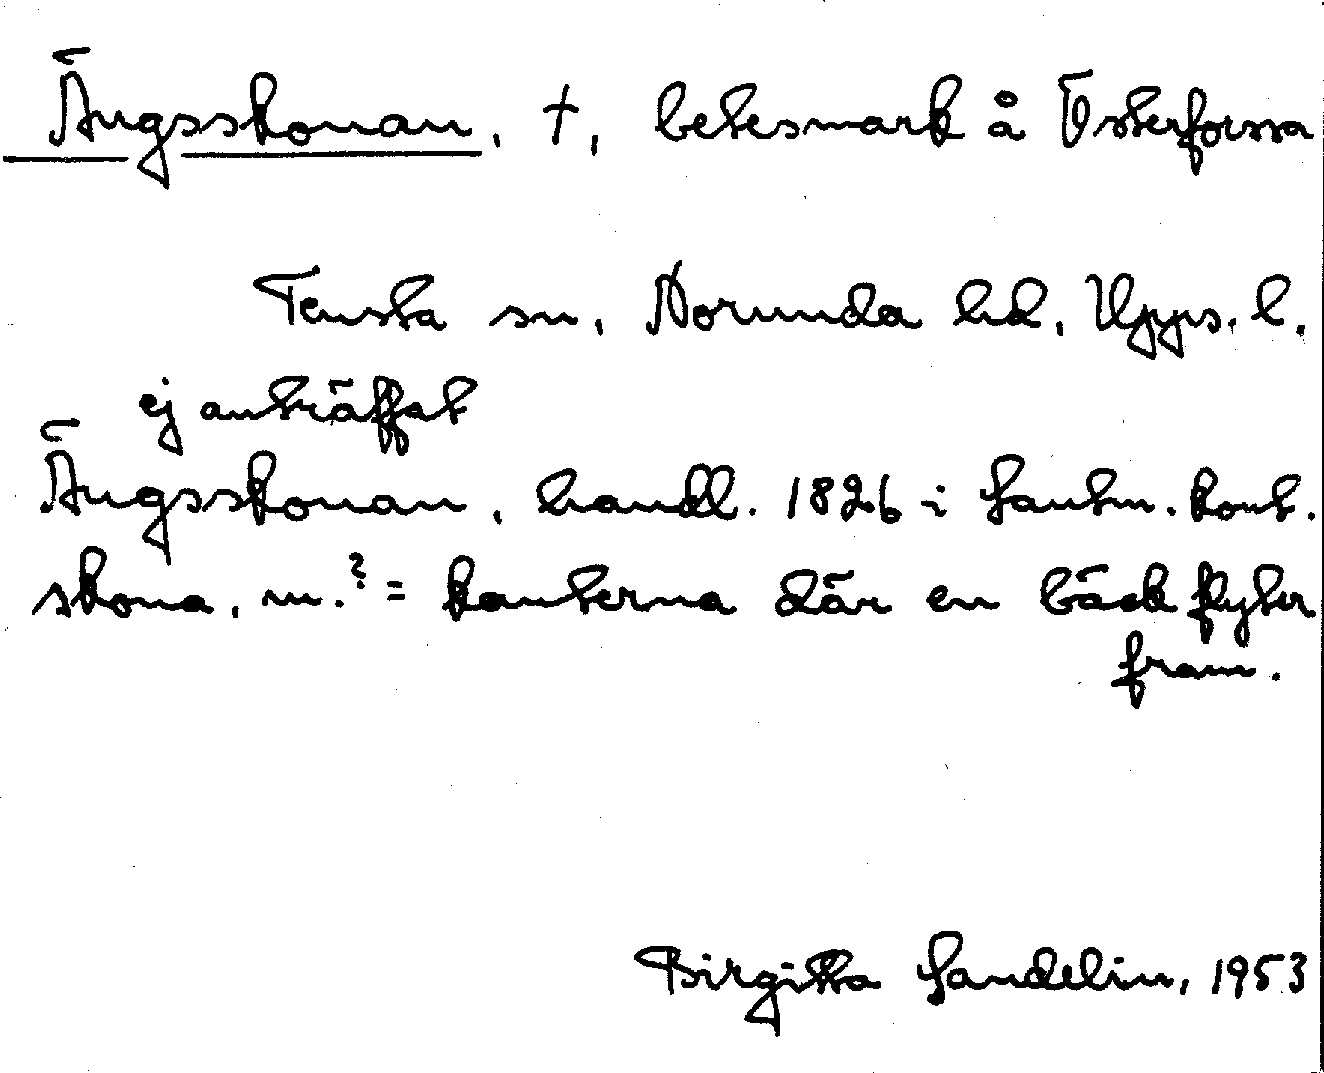 Ängsskonan, †, betesmark å Österforssa
Tensta sn, Norunda hd, Upps. l.
ej anträffat
Ängsskonan, handl. 1826 i Lantm. kont.
skona, m.? = kanterna där en bäck flyter
fram.
Birgitta Sandelin, 1953